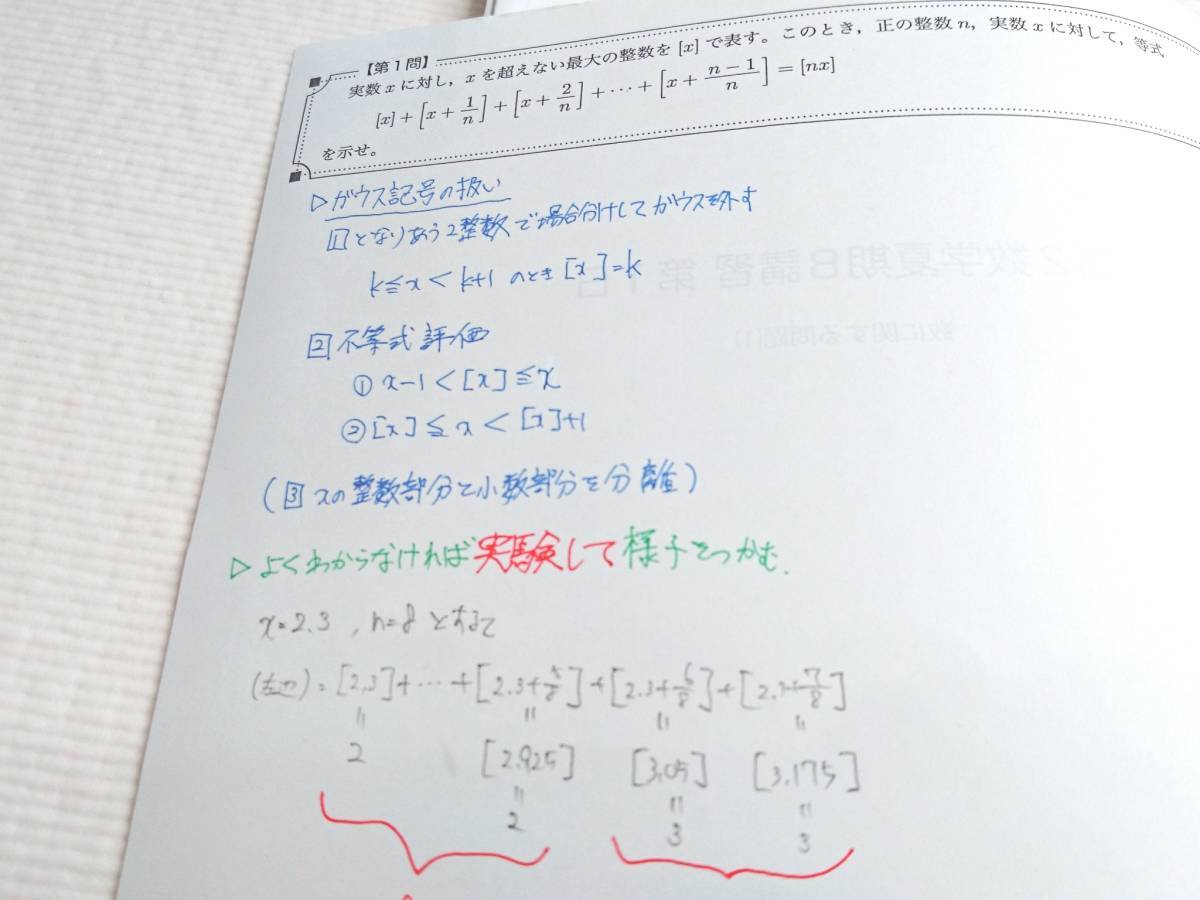 【第1問】
実数 x に対し，x を超えない最大の整数を [x] で表す。このとき，正の整数 n，実数 x に対して，等式
[x] + [x + 1/n] + [x + 2/n] + ⋯ + [x + (n − 1)/n] = [nx]
を示せ。
▷ ガウス記号の扱い
1 となりあう2整数で場合分けしてガウスを外す
k ≦ x < k+1 のとき [x] = k
2 不等式評価
① x−1 < [x] ≦ x
② [x] ≦ x < [x]+1
(3 xの整数部分と小数部分を分離)
▷ よくわからなければ実験して様子をつかむ.
x=2.3 , n=8 とすると
(左辺) = [2.3] + ⋯ + [2.3+5/8] + [2.3+6/8] + [2.3+7/8]
= = = =
2 [2.925] [3.05] [3.175]
= = =
2 3 3
2数学夏期B講習 第1日
数に関する問題1)